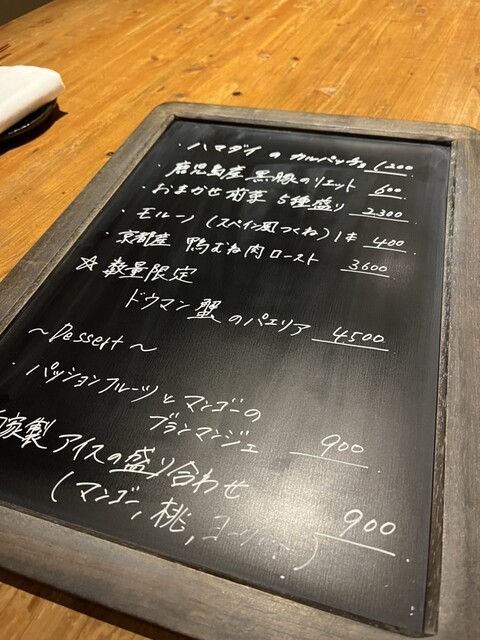 ・ハマダイのカルパッチョ 1200
・鹿児島産 黒豚のリエット 600
・おまかせ前菜 5種盛り 2300
・モルーノ (スペイン風つくね) 1本 400
・京都産 鴨むね肉ロースト 3600
☆数量限定
ドウマン蟹のパエリア 4500
～Dessert～
・パッションフルーツとマンゴーの
ブランマンジェ 900
家製 アイスの盛り合わせ
(マンゴー, 桃, ) 900